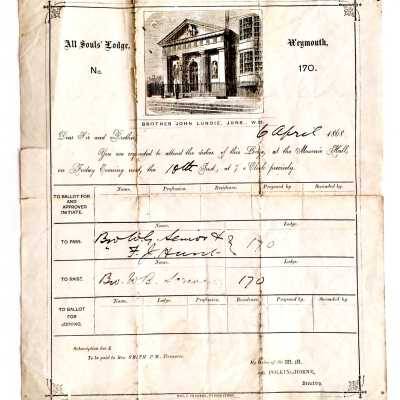 All Souls' Lodge, Weymouth,
No. 170.
BROTHER JOHN LUNDIE, JUNR., W.M.
6 April 1868
Dear Sir and Brother,
You are requested to attend the duties of this Lodge, at the Masonic Hall,
on Friday Evening next, the 10th Inst., at 7 o'Clock precisely.
Name. Profession. Residence. Proposed by. Seconded by.
TO BALLOT FOR AND APPROVED INITIATE.
Name. Lodge.
TO PASS. Bro Wm Senior &
F. J. Hunt } 170
Name. Lodge.
TO RAISE. Bro. W B. 170
Name. Lodge. Profession. Residence. Proposed by. Seconded by.
TO BALLOT FOR JOINING.
Subscription due £
To be paid to Bro. SMITH P.M., Treasurer.
By Order of the W. M.
POLKINGHORNE,
Secretary.